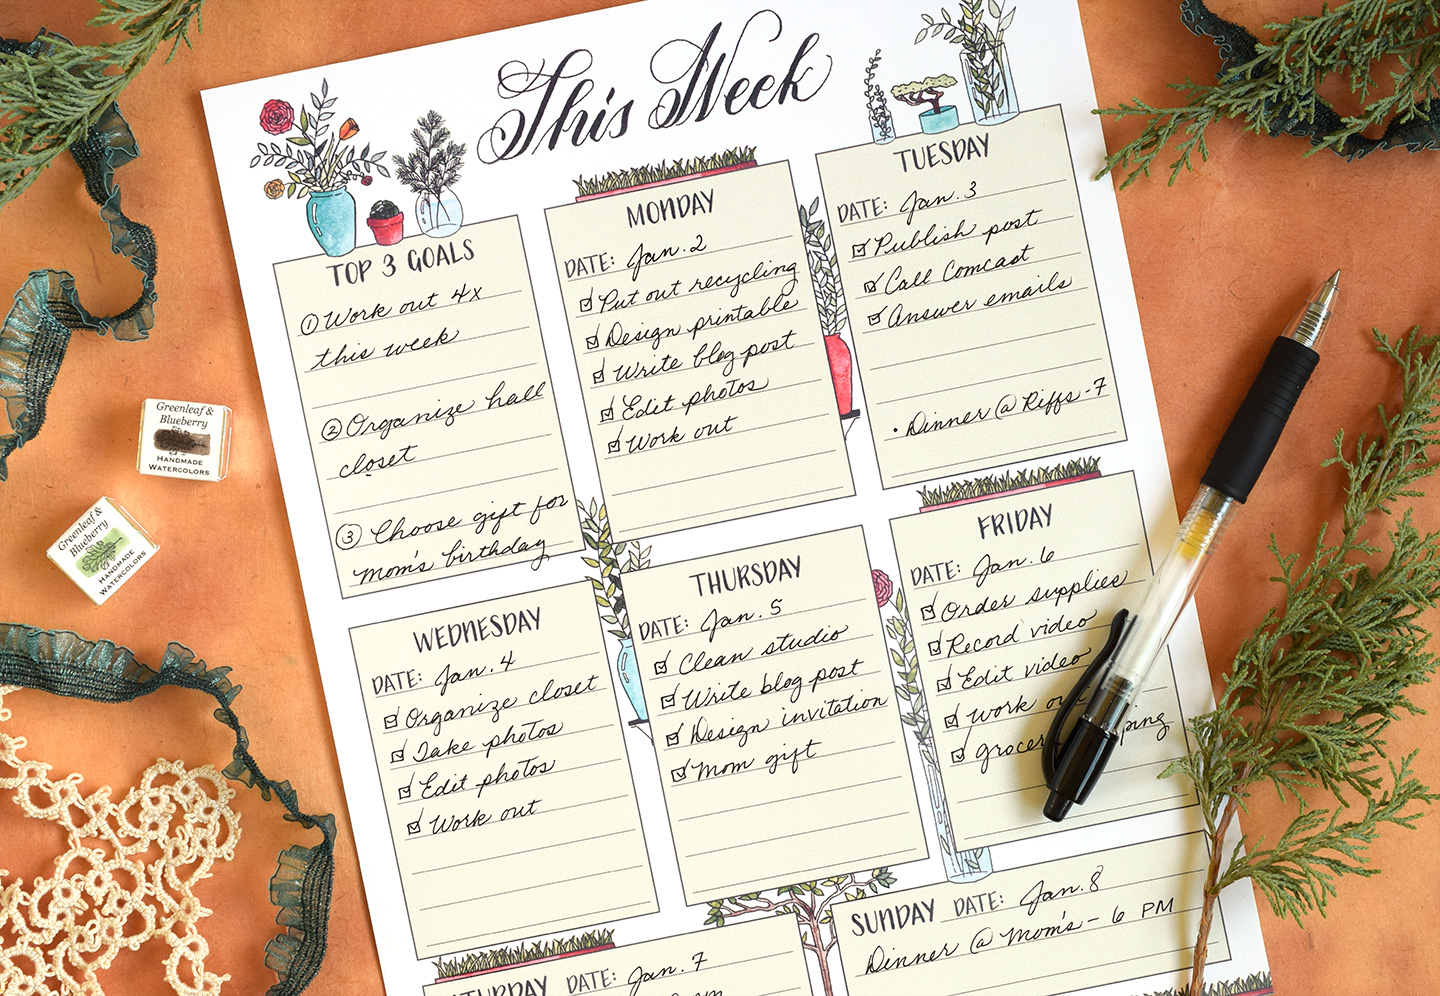 This Week
TOP 3 GOALS
① Work out 4x
this week
② Organize hall
closet
③ Choose gift for
mom's birthday
MONDAY
DATE: Jan. 2
Put out recycling
Design printable
Write blog post
Edit photos
Work out
TUESDAY
DATE: Jan. 3
Publish post
Call Comcast
Answer emails
• Dinner @ Riffs - 7
WEDNESDAY
DATE: Jan. 4
Organize closet
Take photos
Edit photos
Work out
THURSDAY
DATE: Jan. 5
Clean studio
Write blog post
Design invitation
Mom gift
FRIDAY
DATE: Jan. 6
Order supplies
Record video
Edit video
Work
DATE: Jan. 7
SUNDAY DATE: Jan. 8
Dinner @ Mom's - 6 PM
Greenleaf &
Blueberry
HANDMADE
WATERCOLORS
Greenleaf &
Blueberry
HANDMADE
WATERCOLORS